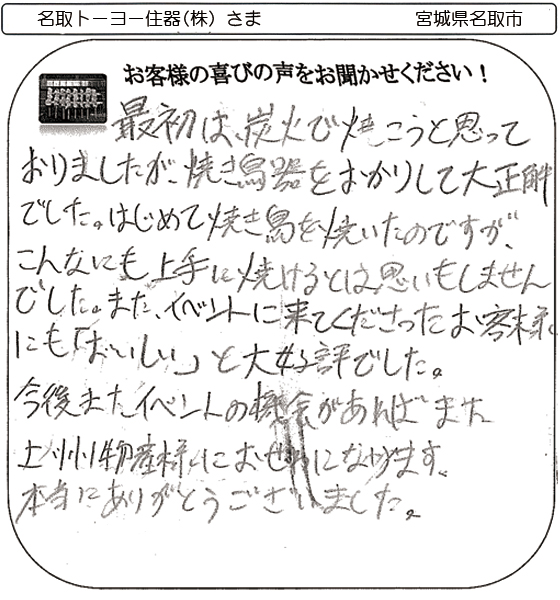 名取トーヨー住器(株) さま 宮城県名取市
お客様の喜びの声をお聞かせください！
最初は、炭火で焼こうと思って
おりましたが、焼き鳥器をおかりして大正解
でした。はじめて焼き鳥を焼いたのですが、
こんなにも上手に焼けるとは思いもしません
でした。また、イベントに来てくださったお客様
にも「おいしい」と大好評でした。
今後またイベントの機会があればまた
上州物産様におせわになります。
本当にありがとうございました。